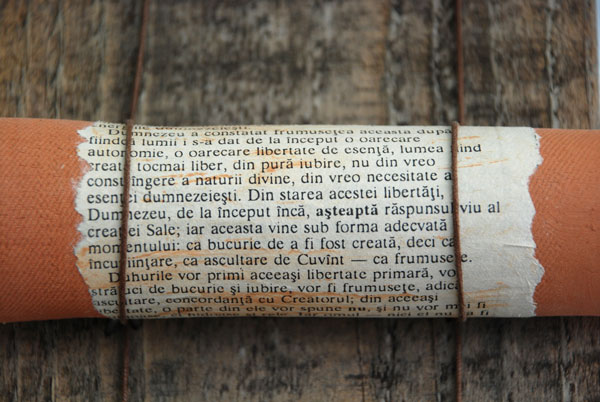 energiile dumnezeieşti.
Dumnezeu a constatat frumuseţea aceasta după
fiindcă lumii i s-a dat de la început o oarecare
autonomie, o oarecare libertate de esenţă, lumea fiind
creată tocmai liber, din pură iubire, nu din vreo
constrîngere a naturii divine, din vreo necesitate a
esenţei dumnezeieşti. Din starea acestei libertăţi,
Dumnezeu, de la început încă, aşteaptă răspunsul viu al
creaţiei Sale; iar aceasta vine sub forma adecvată
momentului: ca bucurie de a fi fost creată, deci ca
încuviinţare, ca ascultare de Cuvînt — ca frumuseţe.
Duhurile vor primi aceeaşi libertate primară, vor
străluci de bucurie şi iubire, vor fi frumuseţe, adică
ascultare, concordanţă cu Creatorul; din aceeaşi
libertate, o parte din ele vor spune nu, şi nu vor mai fi